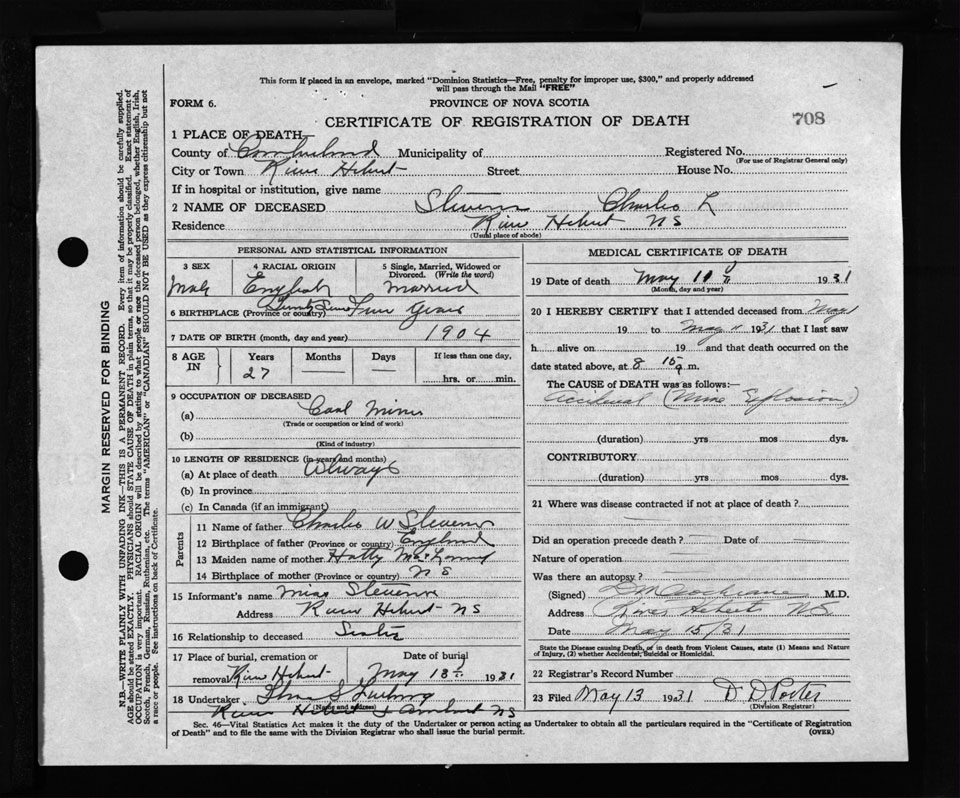 This form if placed in an envelope, marked "Dominion Statistics—Free, penalty for improper use, $300," and properly addressed
will pass through the Mail "FREE"
FORM 6.
PROVINCE OF NOVA SCOTIA
CERTIFICATE OF REGISTRATION OF DEATH
708
1 PLACE OF DEATH—
County of Cumberland Municipality of Registered No.
(For use of Registrar General only)
City or Town River Hebert Street House No.
If in hospital or institution, give name
2 NAME OF DECEASED Stevens Charles L
Residence River Hebert NS
(Usual place of abode)
PERSONAL AND STATISTICAL INFORMATION
3 SEX 4 RACIAL ORIGIN 5 Single, Married, Widowed or
Divorced. (Write the word)
Male English Married
6 BIRTHPLACE (Province or country)
7 DATE OF BIRTH (month, day and year) 1904
8 AGE IN Years Months Days If less than one day,
27 — — hrs. or min.
9 OCCUPATION OF DECEASED
(a) Coal Miner
(Trade or occupation or kind of work)
(b)
(Kind of industry)
10 LENGTH OF RESIDENCE (in years and months)
(a) At place of death Always
(b) In province
(c) In Canada (if an immigrant)
Parents
11 Name of father Charles W Stevens
12 Birthplace of father (Province or country) England
13 Maiden name of mother Hatty
14 Birthplace of mother (Province or country) NS
15 Informant's name Miss Stevens
Address River Hebert NS
16 Relationship to deceased Sister
17 Place of burial, cremation or Date of burial
removal River Hebert May 13 1931
18 Undertaker
(Name and address)
River Hebert & Amherst NS
MEDICAL CERTIFICATE OF DEATH
19 Date of death May 11 1931
(Month, day and year)
20 I HEREBY CERTIFY that I attended deceased from May
19 to May 11 1931 that I last saw
h alive on 19 and that death occurred on the
date stated above, at 8 15 a m.
The CAUSE of DEATH was as follows:—
Accidental (Mine Explosion)
(duration) yrs mos dys.
CONTRIBUTORY
(duration) yrs mos dys.
21 Where was disease contracted if not at place of death?
Did an operation precede death? — Date of —
Nature of operation —
Was there an autopsy? —
(Signed) D M Cochrane M.D.
Address River Hebert NS
Date May 15/31
State the Disease causing Death, or in death from Violent Causes, state (1) Means and Nature
of Injury, (2) whether Accidental, Suicidal or Homicidal.
22 Registrar's Record Number
23 Filed May 13 1931 D. D. Porter
(Division Registrar)
Sec. 46—Vital Statistics Act makes it the duty of the Undertaker or person acting as Undertaker to obtain all the particulars required in the "Certificate of Registration
of Death" and to file the same with the Division Registrar who shall issue the burial permit.
(OVER)
MARGIN RESERVED FOR BINDING
N.B.—WRITE PLAINLY WITH UNFADING INK—THIS IS A PERMANENT RECORD. Every item of information should be carefully supplied.
AGE should be stated EXACTLY. PHYSICIANS should STATE CAUSE OF DEATH in plain terms, so that it may be properly classified. Exact statement of
OCCUPATION is very important. RACIAL ORIGIN will be described by stating to what people or race the deceased person belonged, whether English, Irish,
Scotch, French, German, Russian, Ruthenian, etc. The terms "AMERICAN" or "CANADIAN" SHOULD NOT BE USED as they express citizenship but not
a race or people. See instructions on back of Certificate.